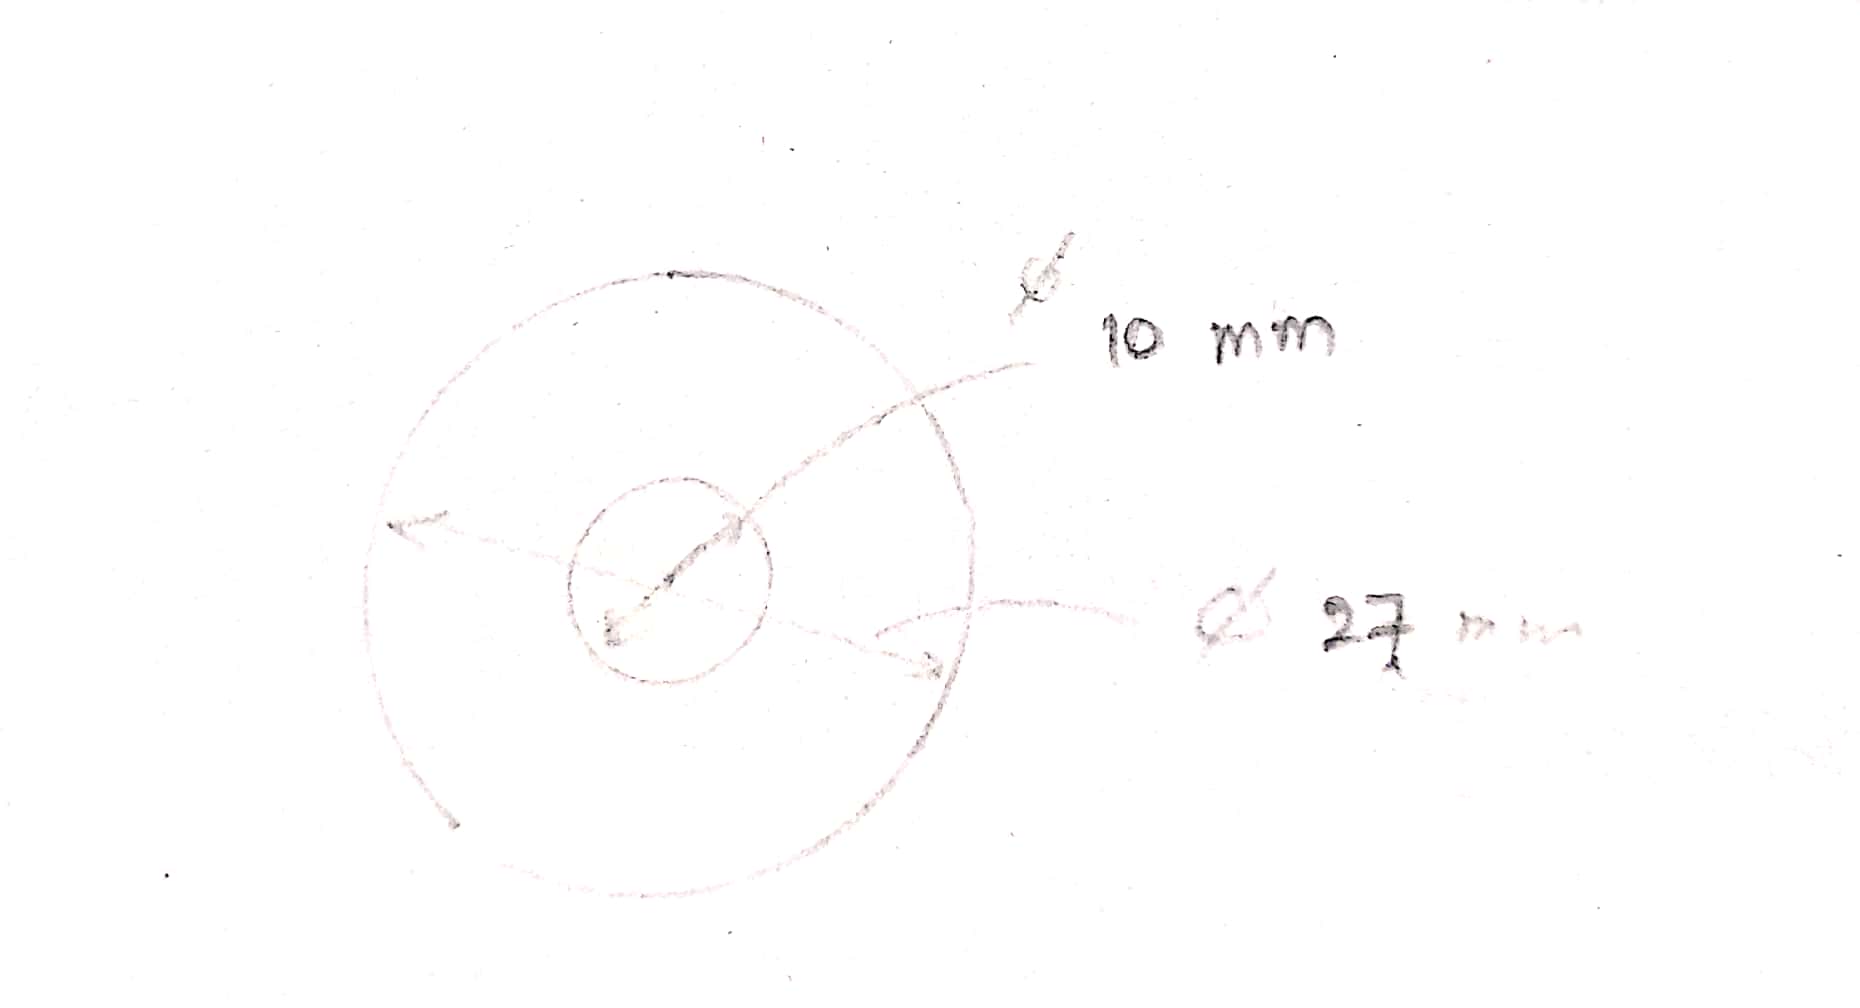 ⌀ 10 mm
⌀ 27 mm